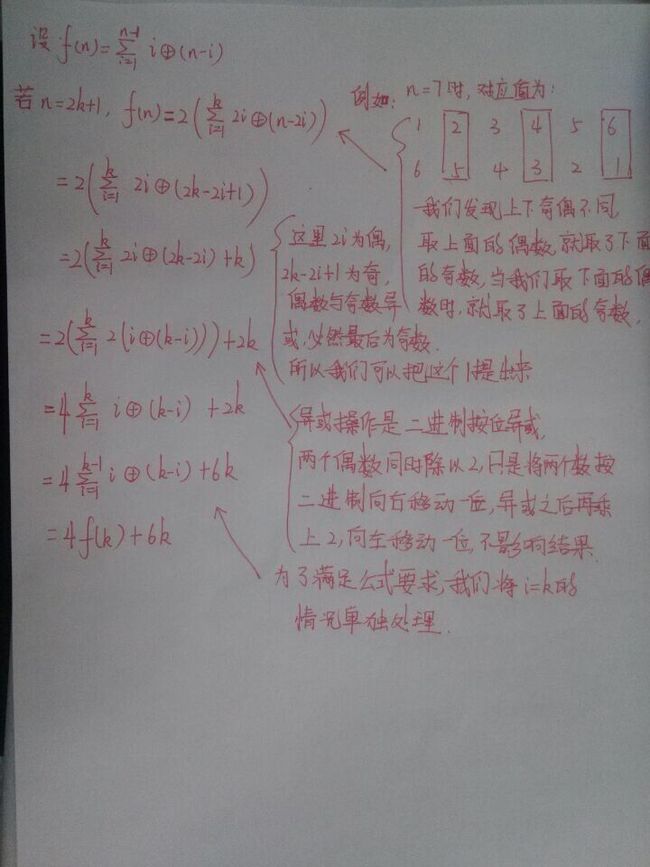 设 f(n)=∑_{i=1}^{n-1} i⊕(n-i)
若 n=2k+1, f(n)=2(∑_{i=1}^{k} 2i⊕(n-2i))
例如: n=7时, 对应值为:
1 2 3 4 5 6
6 5 4 3 2 1
我们发现上下奇偶不同,
取上面的偶数,就取了下面
的奇数,当我们取下面的偶
数时,就取了上面的奇数,
=2(∑_{i=1}^{k} 2i⊕(2k-2i+1))
=2(∑_{i=1}^{k} 2i⊕(2k-2i)+k)
这里2i为偶,
2k-2i+1为奇,
偶数与奇数异
或,必然最后为奇数.
所以我们可以把这个1提出来
=2(∑_{i=1}^{k} 2(i⊕(k-i)))+2k
=4∑_{i=1}^{k} i⊕(k-i) +2k
异或操作是二进制按位异或,
两个偶数同时除以2,只是将两个数按
二进制向右移动一位,异或之后再乘
上2,向左移动一位,不影响结果.
=4∑_{i=1}^{k-1} i⊕(k-i)+6k
=4f(k)+6k
为了满足公式要求,我们将i=k的
情况单独处理.